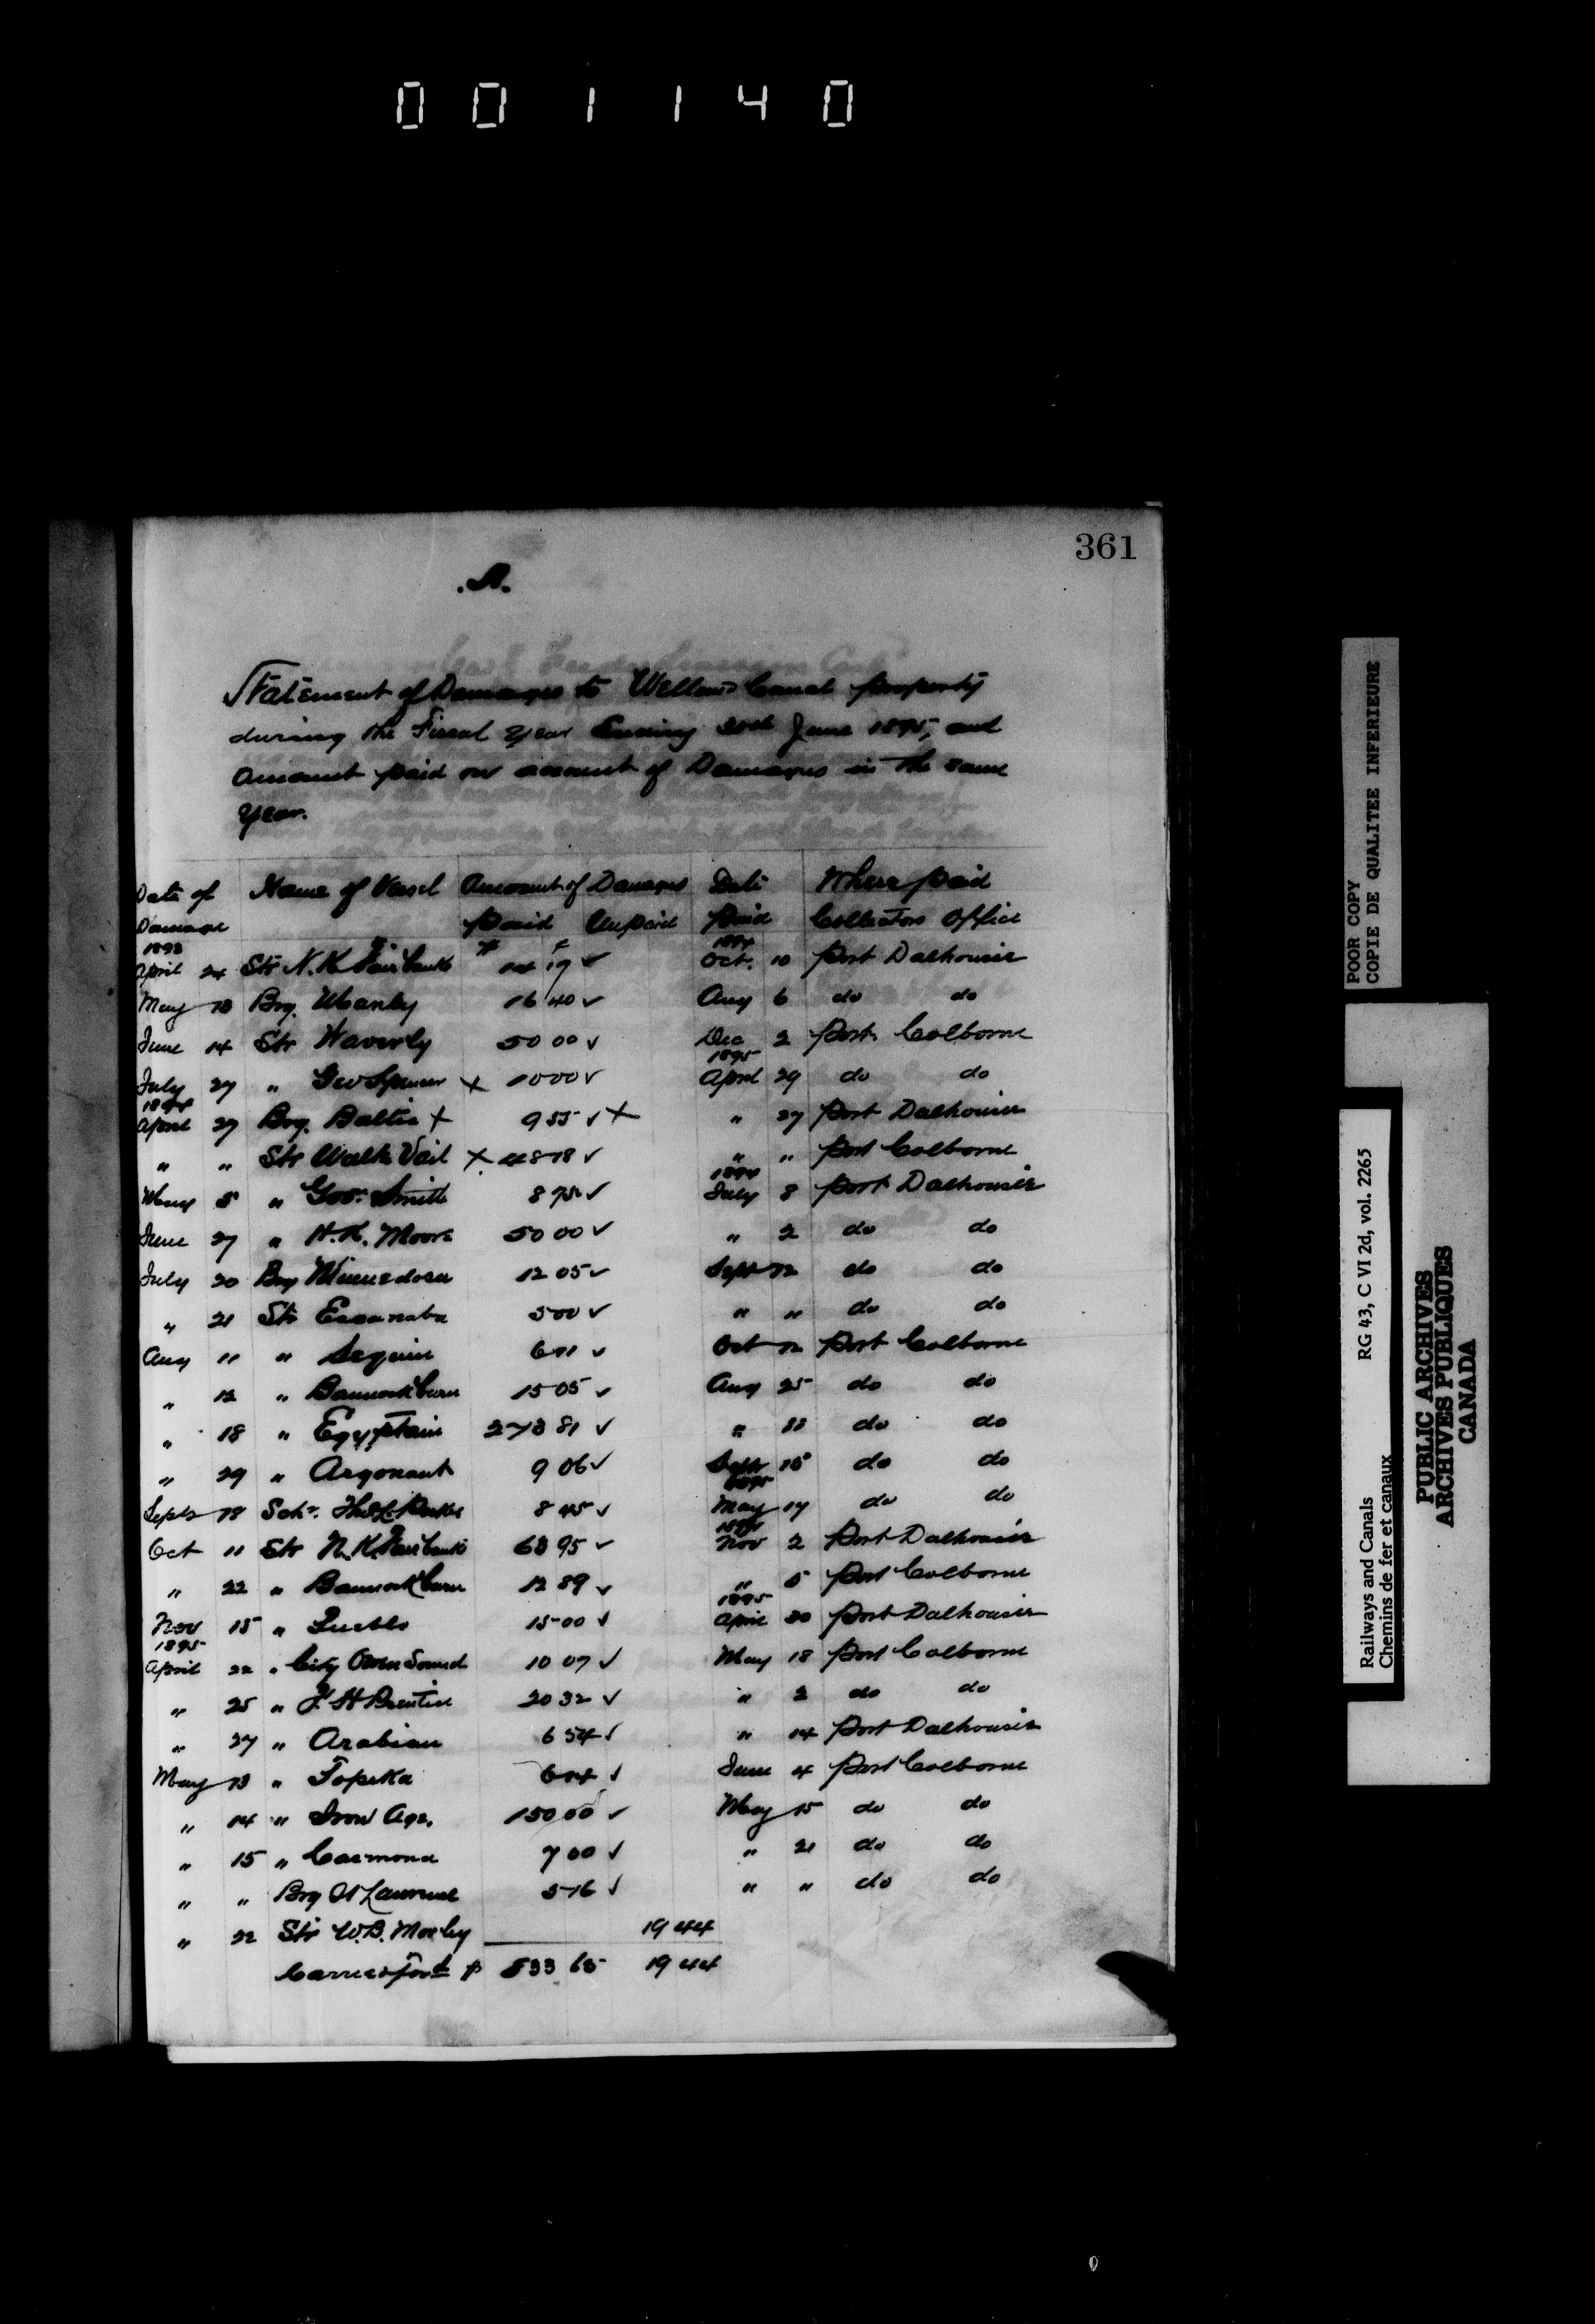 001140
361
.A.
Statement of Damages to Welland Canal property
during the Fiscal Year Ending 30th June 1895, and
Amount paid on account of Damages in the same
Year.
Date of Name of Vessel Amount of Damages Date Where paid
Damage paid Unpaid Paid Collectors Office
1893 $ c 1894
April 24 Str N.K. Fairbank 14 19 ✓ Oct. 10 Port Dalhousie
May 13 Brg. 16 40 ✓ Aug 6 do do
June 14 Str Waverly 50 00 ✓ Dec 2 Port Colborne
1895
July 27 " Geo Spencer x 10 00 ✓ April 29 do do
1894
April 27 Brg. Baltic x 9 55 ✓ x " 27 Port Dalhousie
" " Str Walter Vail x 48 78 ✓ " " Port Colborne
1894
May 8 " Gov. Smith 8 75 ✓ July 8 Port Dalhousie
June 27 " H.K. Moore 50 00 ✓ " 2 do do
July 20 Brg Minnedosa 12 05 ✓ Sept 12 do do
" 21 Str Escanaba 5 00 ✓ " " do do
Aug 11 " Seguin 6 11 ✓ Oct 12 Port Colborne
" 12 " Bannockburn 15 05 ✓ Aug 25 do do
" 18 " Egyptain 273 81 ✓ " do do
" 29 " Argonaut 9 06 ✓ Sept 15 do do
1895
Septr 18 Schr. 8 45 ✓ May 17 do do
1894
Oct 11 Str N.K. Fairbank 63 95 ✓ Nov 2 Port Dalhousie
" 22 " Bannockburn 12 89 ✓ " 5 Port Colborne
1895
Nov 15 " Pueblo 15 00 ✓ April 30 Port Dalhousie
1895
April 22 " City Owen Sound 10 07 ✓ May 18 Port Colborne
" 25 " F.H. Prentice 20 32 ✓ " 2 do do
" 27 " Arabian 6 54 ✓ " 14 Port Dalhousie
May 13 " Topeka 6 04 ✓ June 4 Port Colborne
" 14 " Iron Age. 150 00 ✓ May 15 do do
" 15 " Carmona 7 00 ✓ " 21 do do
" " Brg St Lawrence 5 16 ✓ " " do do
" 22 Str W.B. Morley 19 44
Carried Forwd $ 833 65 19 44
POOR COPY
COPIE DE QUALITEE INFERIEURE
Railways and Canals RG 43, C VI 2d, vol. 2265
Chemins de fer et canaux
PUBLIC ARCHIVES
ARCHIVES PUBLIQUES
CANADA